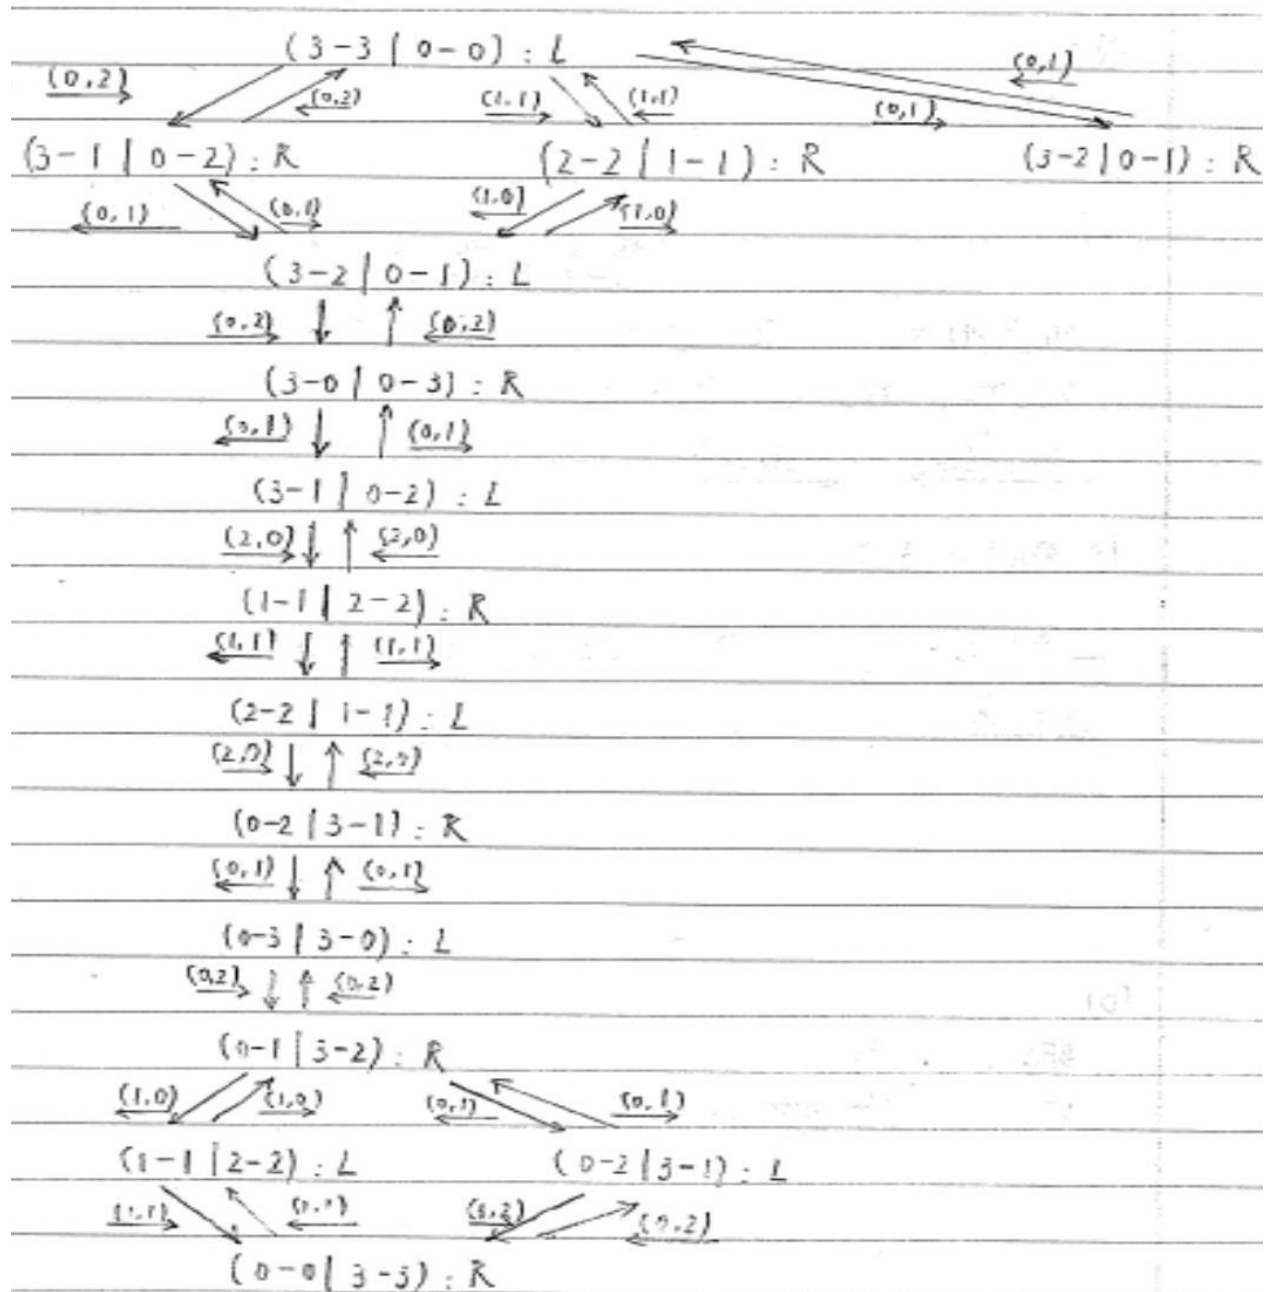 (3-3 | 0-0) : L
(0,2) (0,2) (1,1) (1,1) (0,1) (0,1)
(3-1 | 0-2) : R (2-2 | 1-1) : R (3-2 | 0-1) : R
(0,1) (0,1) (1,0) (1,0)
(3-2 | 0-1) : L
(0,2) (0,2)
(3-0 | 0-3) : R
(0,1) (0,1)
(3-1 | 0-2) : L
(2,0) (2,0)
(1-1 | 2-2) : R
(1,1) (1,1)
(2-2 | 1-1) : L
(2,0) (2,0)
(0-2 | 3-1) : R
(0,1) (0,1)
(0-3 | 3-0) : L
(0,2) (0,2)
(0-1 | 3-2) : R
(1,0) (1,0) (0,1) (0,1)
(1-1 | 2-2) : L (0-2 | 3-1) : L
(1,1) (1,1) (0,2) (0,2)
(0-0 | 3-3) : R